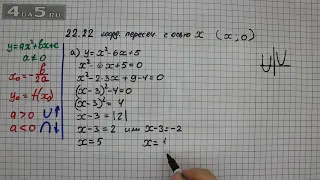 4 5.ru
22.22 коорд. пересеч. с осью x (x, 0)
y=ax²+bx+c
a≠0
x₀=-b/2a
y₀=f(x₀)
a>0 ∪↑
a<0 ∩↓
a) y=x²-6x+5
x²-6x+5=0
x²-2·3x+9-4=0
(x-3)²-4=0
(x-3)²=4
x-3=|2|
x-3=2 или x-3=-2
x=5 x=1